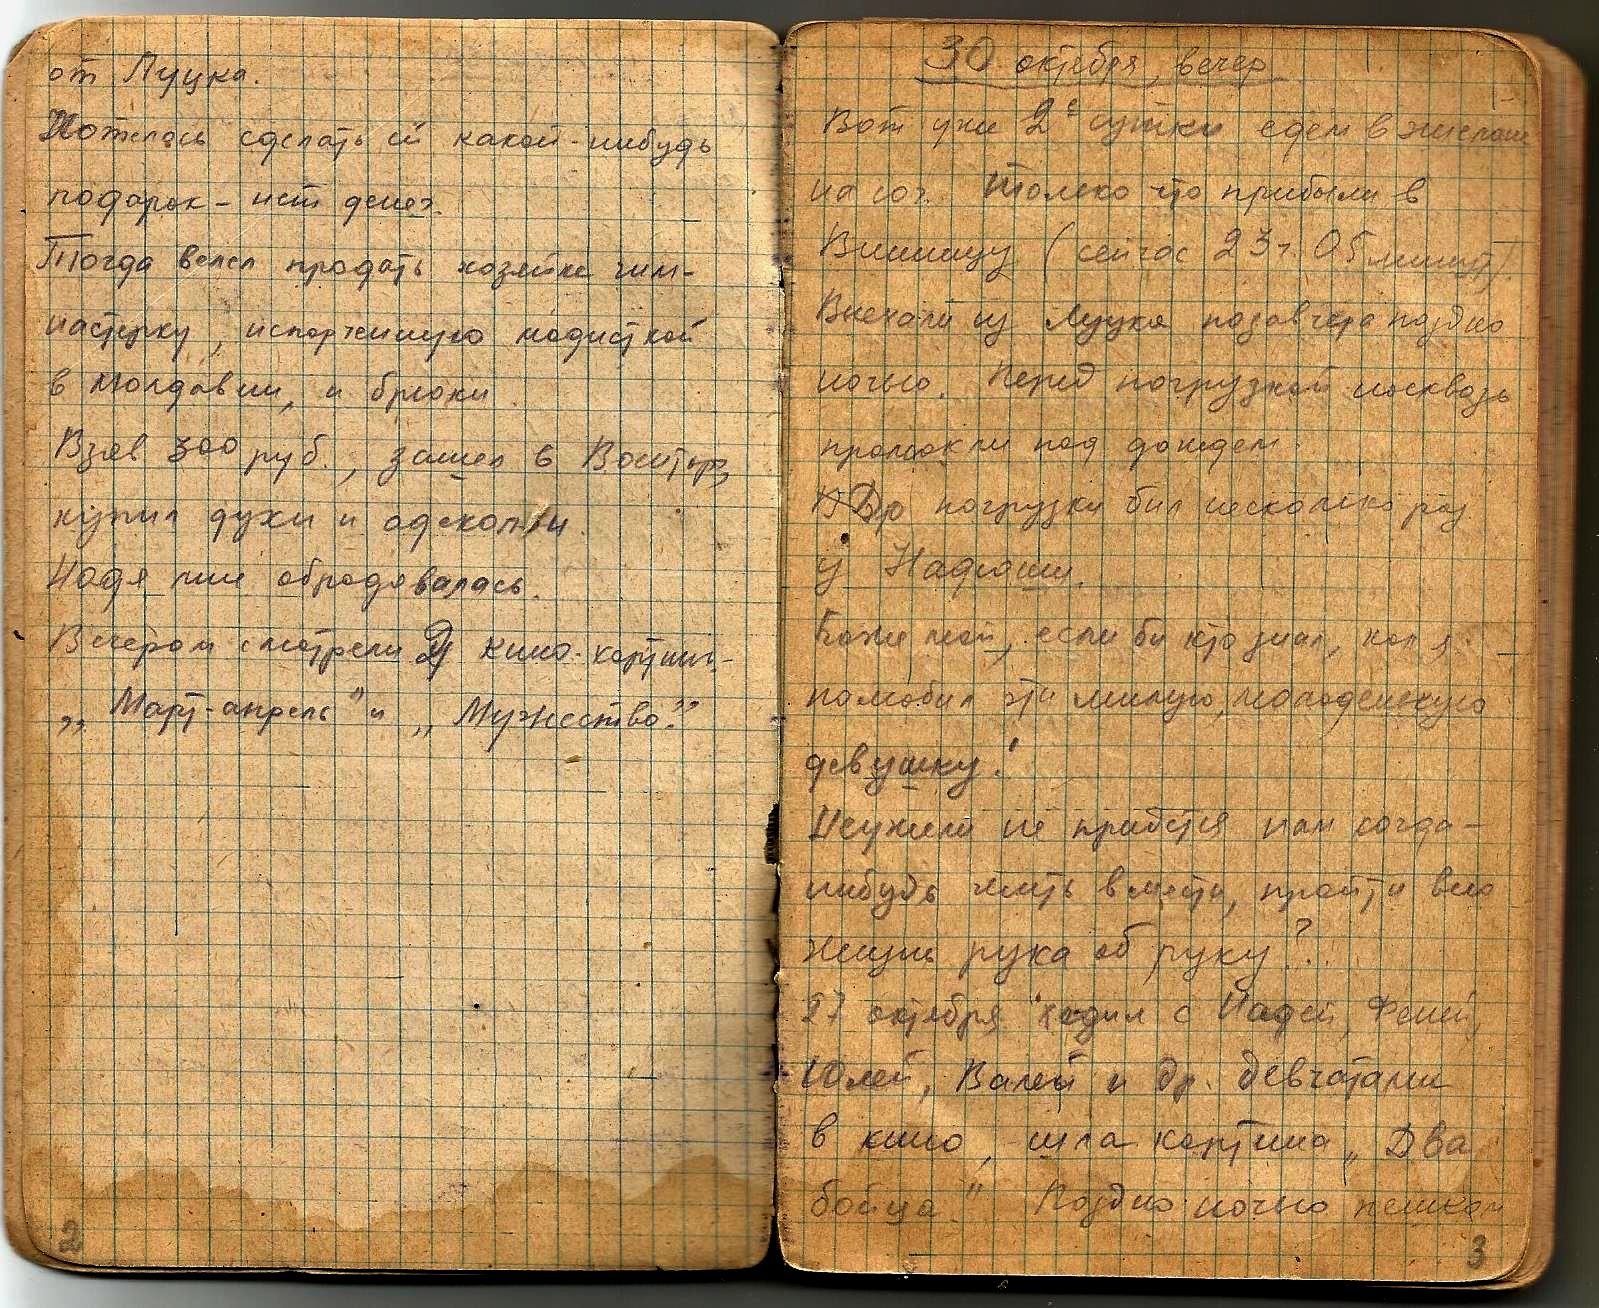 от Луцка.
Хотелось сделать ей какой-нибудь
подарок - нет денег.
Тогда велел продать хозяйке гим-
настерку, испорченную модисткой
в Молдавии, и брюки.
Взяв 300 руб., зашел в Военторг,
купил духи и одеколон.
Надя мне обрадовалась.
Вечером смотрели 2 кино-картины -
„Март-апрель" и „Мужество".
2
30 октября, вечер
Вот уже 2е сутки едем в эшелоне
на юг. Только что прибыли в
Винницу (сейчас 23 ч. 05 минут).
Выехали из Луцка позавчера поздно
ночью. Перед погрузкой насквозь
промокли под дождем.
До погрузки был несколько раз
у Надюши.
Боже мой, если бы кто знал, как я
полюбил эту милую, молоденькую
девушку!
Неужели не придется нам когда-
нибудь жить вместе, пройти всю
жизнь рука об руку?
27 октября ходил с Надей, Феней,
Юлей, Валей и др. девчатами
в кино, шла картина „Два
бойца". Поздно ночью пешком
3